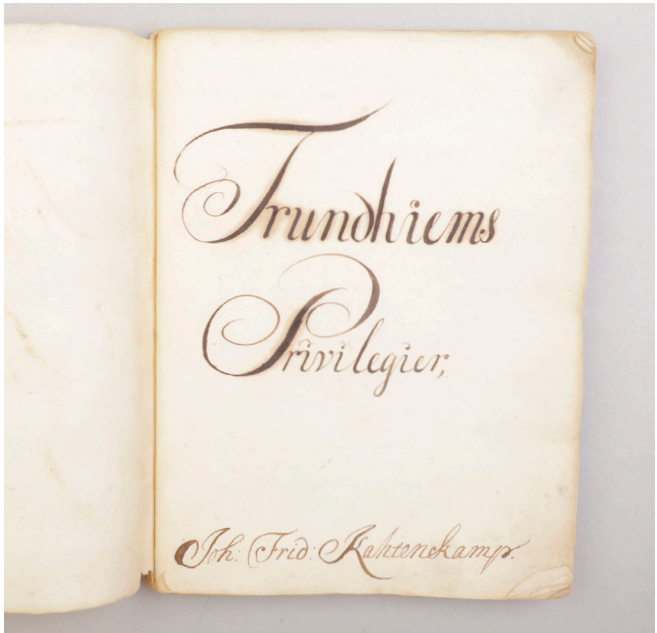 Trundhiems
Privilegier,
Joh: Frid: Kahtenskamp.